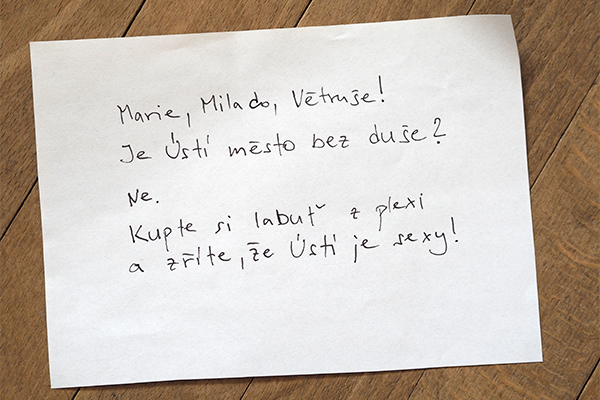 Marie, Milado, Větruše!
Je Ústí město bez duše?
Ne.
Kupte si labuť z plexi
a zříte, že Ústí je sexy!